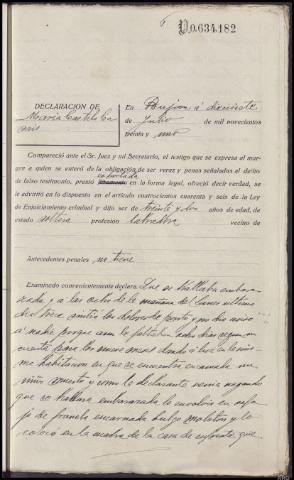 V0.634.182
DECLARACION DE
María Castelo Ca
En Boujon á diecisiete
de Julio de mil novecientos
treinta y uno
Compareció ante el Sr. Juez y mi Secretario, el testigo que se expresa al mar-
gen a quien se enteró de la obligación de ser veraz y penas señaladas al delito
de falso testimonio, prestó en la forma legal, ofreció decir verdad, se
le advirtió en lo dispuesto en el artículo cuatrocientos cuarenta y seis de la Ley
de Enjuiciamiento criminal y dijo ser de treinta y dos años de edad, de
estado soltera profesión labradora vecino de
Antecedentes penales no tiene
Examinado convenientemente declara. Que se hallaba embara-
zada y a las ocho de la mañana del lunes último
dia trece sintió los dolores de parto y no dió aviso
a nadie porque aun le faltaban ocho dias segun su
cuenta para los nueve meses dando á luz en la mis-
ma habitacion en que se encuentra encamada un
niño muerto y como la declarante venia negando
que se hallara embarazada lo envolvió en
de franela encarnada y lo
colocó en la cuadra de la casa de que